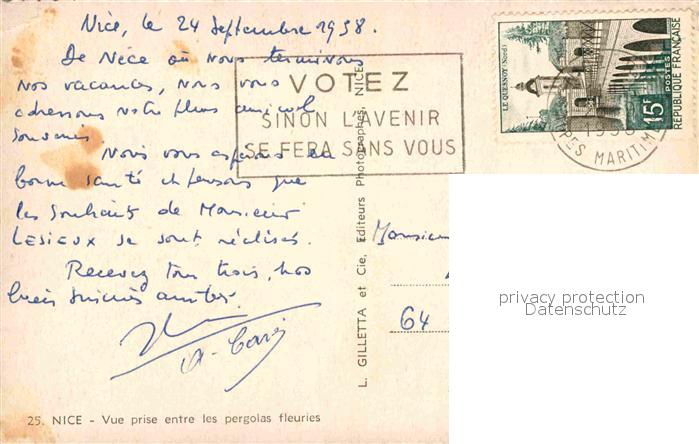 Nice, le 24 Septembre 1958.
De Nice où nous terminons
nos vacances, nous vous
adressons notre plus amical
souvenir.
Nous vous espérons en
bonne santé et pensons que
les souhaits de Monsieur
LESIEUX se sont réalisés.
Recevez tous trois, nos
bien sincères amitiés.
25. NICE - Vue prise entre les pergolas fleuries
VOTEZ
SINON L'AVENIR
SE FERA SANS VOUS
L. GILLETTA et Cie, Editeurs Photographes, NICE
LE QUESNOY (Nord)
15F
POSTES
REPUBLIQUE FRANÇAISE
MARITIM
Monsieur
64
privacy protection
Datenschutz